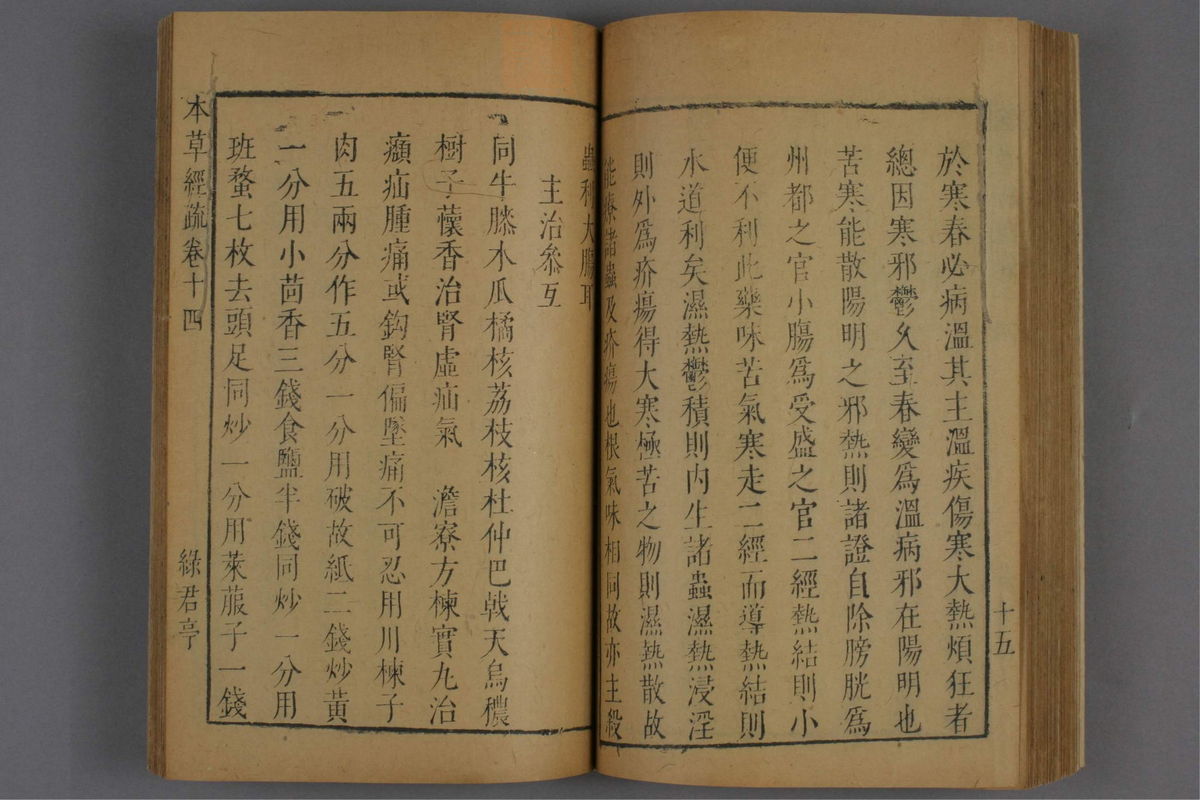 於寒春必病溫其主溫疾傷寒大熱煩狂者
總因寒邪鬱久至春變爲溫病邪在陽明也
苦寒能散陽明之邪熱則諸證自除膀胱爲
州都之官小腸爲受盛之官二經熱結則小
便不利此藥味苦氣寒走二經而導熱結則
水道利矣濕熱鬱積則内生諸蟲濕熱浸淫
則外爲疥瘍得大寒極苦之物則濕熱散故
能療諸蟲及疥瘍也根氣味相同故亦主殺
蟲利大腸耳
十五
主治叅互
同牛膝木瓜橘核荔枝核杜仲巴戟天烏藥
樹子蘹香治腎虛疝氣　澹寮方楝實丸治
㿗疝腫痛或鈎腎偏墜痛不可忍用川楝子
肉五兩分作五分一分用破故紙二錢炒黃
一分用小茴香三錢食鹽半錢同炒一分用
班蝥七枚去頭足同炒一分用萊菔子一錢
本草經疏卷十四
綠君亭